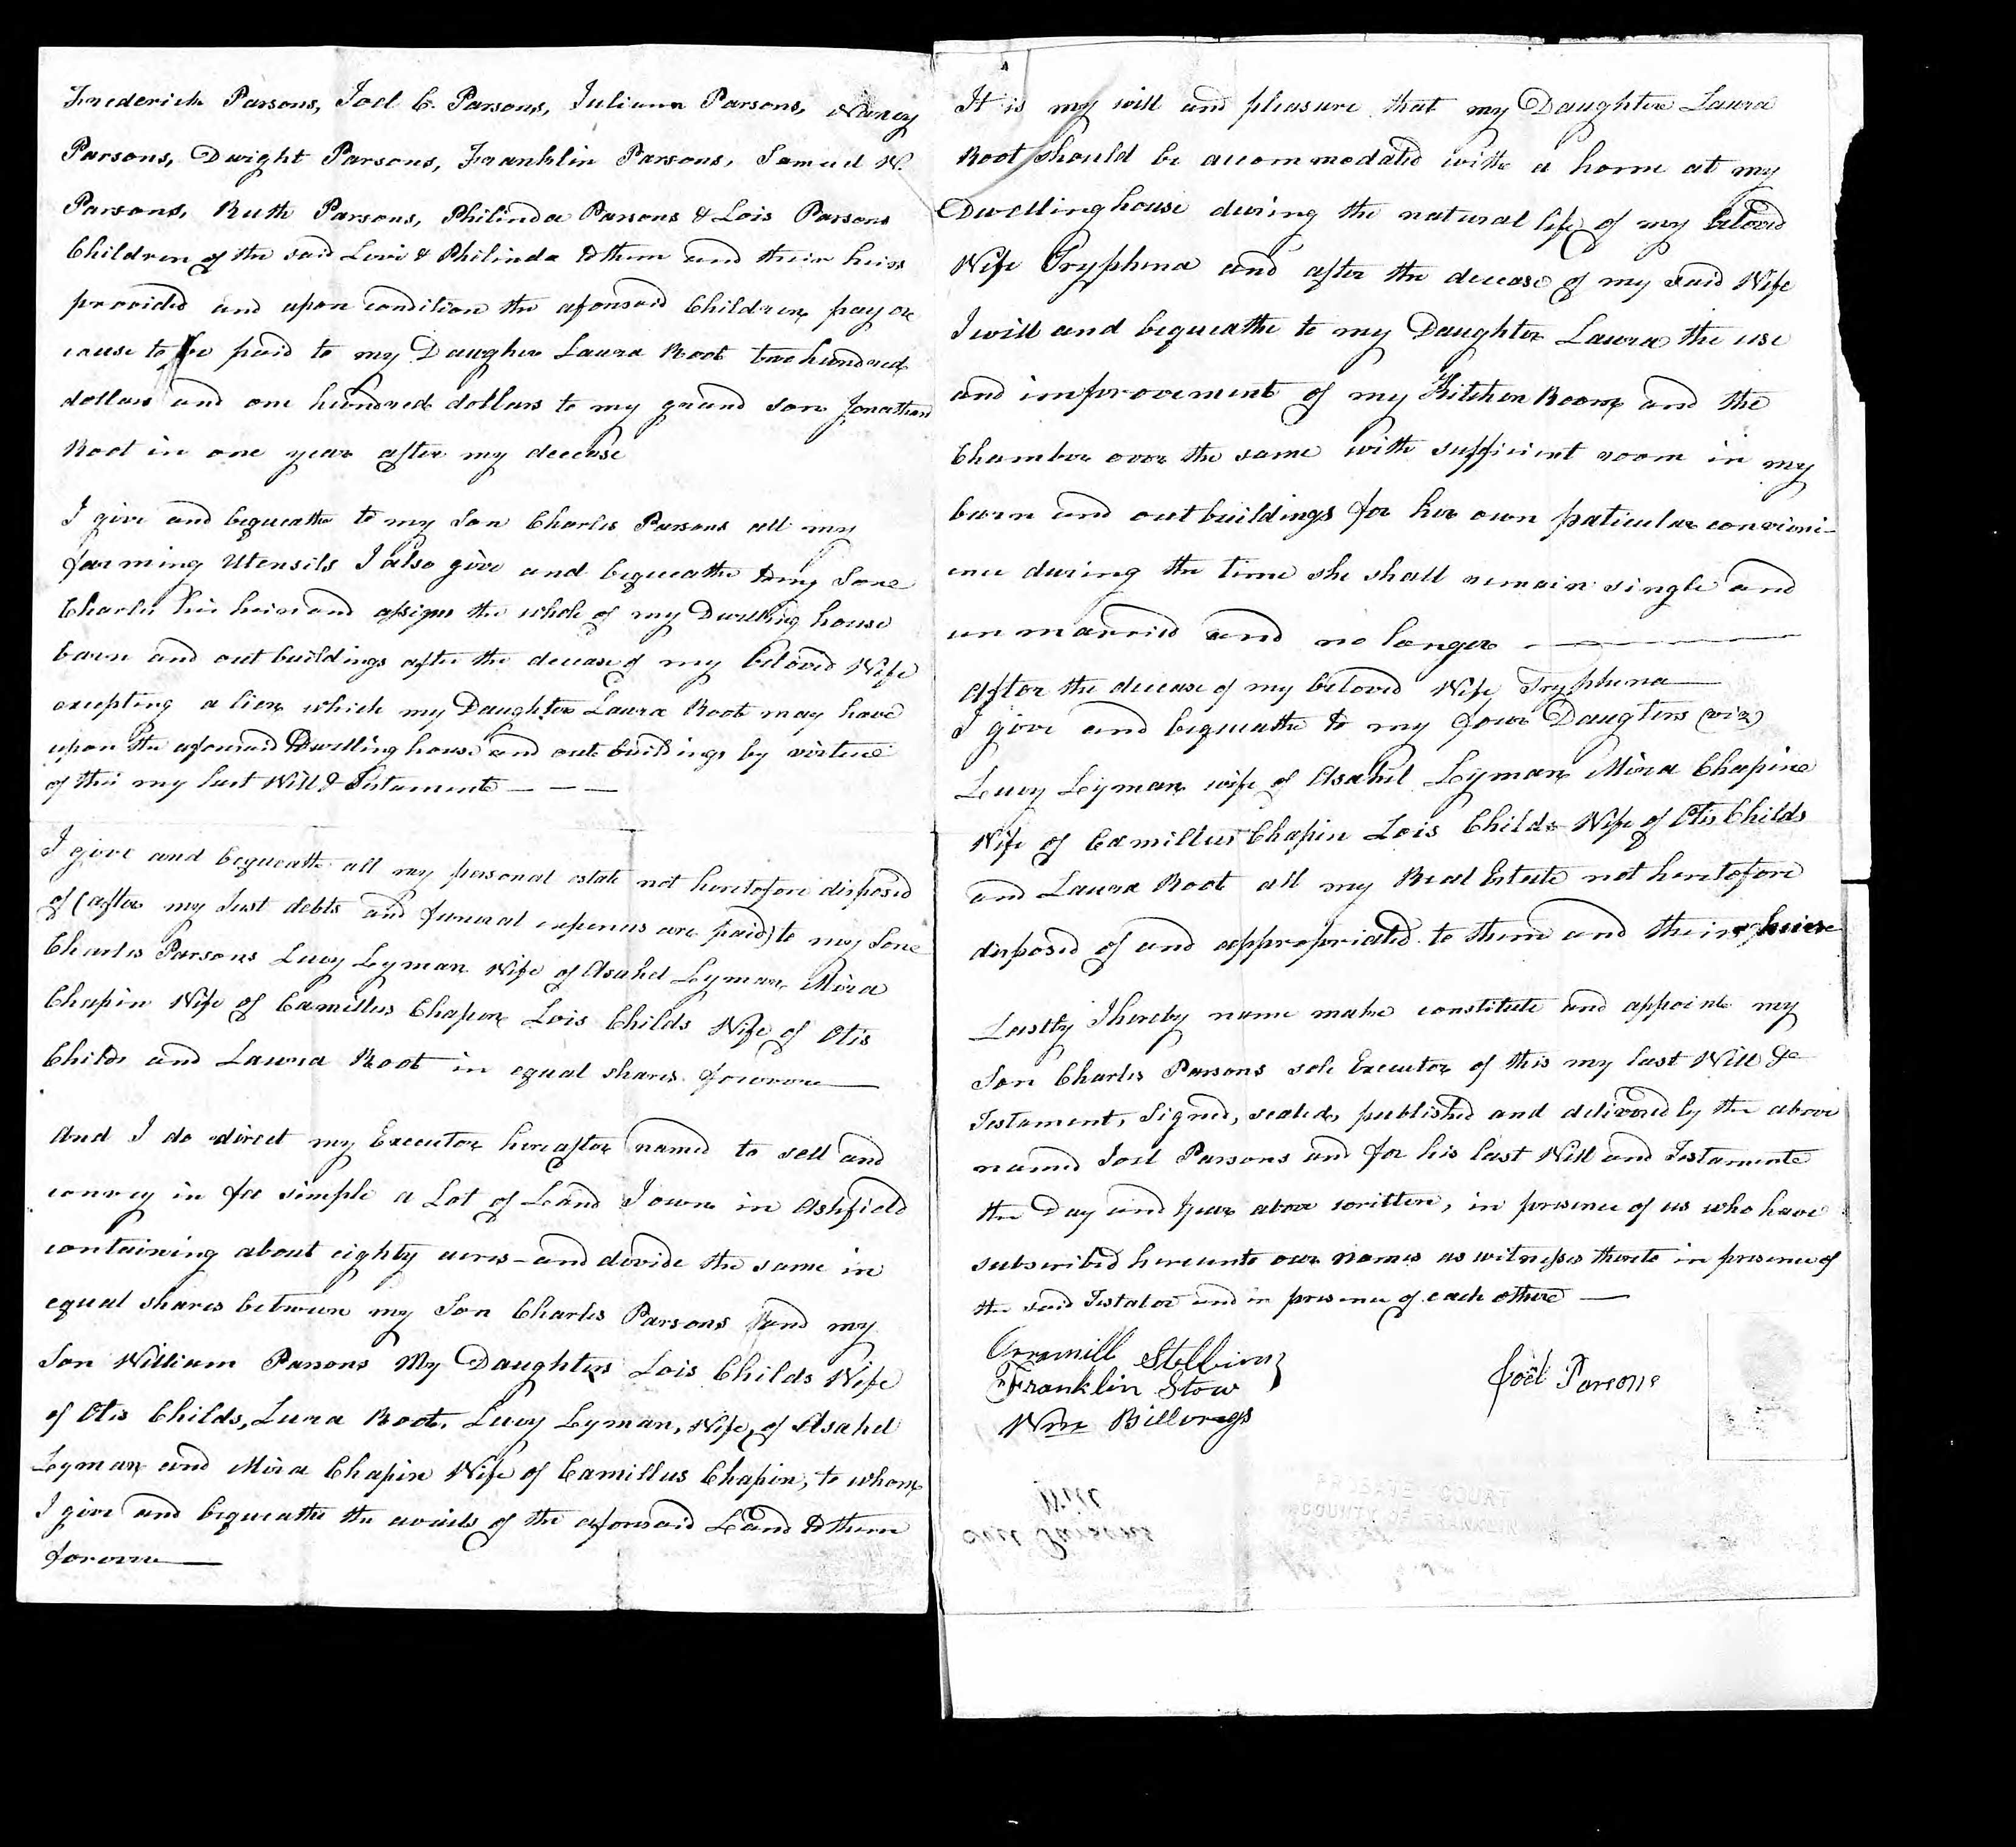 Frederick Parsons, Joel C. Parsons, Juliann Parsons, Nancy
Parsons, Dwight Parsons, Franklin Parsons, Samuel W.
Parsons, Ruth Parsons, Philinda Parsons & Lois Parsons
Children of the said Levi & Philinda to them and their heirs
provided and upon condition the aforesaid Children pay or
cause to be paid to my Daugher Laura Root two hundred
dollars and one hundred dollars to my grand son Jonathan
Root in one year after my decease
I give and bequeathe to my Son Charles Parsons all my
farming Utensils I also give and bequeathe to my Son
Charles his heirs and assigns the whole of my Dwelling house
barn and out buildings after the decease of my beloved Wife
excepting a lien which my Daughter Laura Root may have
upon the aforesaid Dwelling house and out buildings by virtue
of this my last Will & Testament — — —
I give and bequeathe all my personal estate not heretofore disposed
of (after my Just debts and funeral expences are paid) to my Son
Charles Parsons Lucy Lyman Wife of Asahel Lyman Mira
Chapin Wife of Camillus Chapin Lois Childs Wife of Otis
Childs and Laura Root in equal shares forever —
And I do direct my Executor hereafter named to sell and
convey in fee simple a Lot of Land I own in Ashfield
containing about eighty acres - and devide the same in
equal shares between my Son Charles Parsons and my
Son William Parsons My Daughters Lois Childs Wife
of Otis Childs, Lura Root, Lucy Lyman, Wife, of Asahel
Lyman and Mira Chapin Wife of Camillus Chapin, to whom
I give and bequeathe the avails of the aforesaid Land to them
forever —
It is my will and pleasure that my Daughter Laura
Root should be accommodated with a home at my
Dwelling house during the natural life of my beloved
Wife Tryphena and after the decease of my said Wife
I will and bequeathe to my Daughter Laura the use
and improvement of my Kitchen Room and the
Chamber over the same with sufficient room in my
barn and out buildings for her own paticular convieni-
ence during the time she shall remain single and
un married and no longer —
After the decease of my beloved Wife Tryphena —
I give and bequeathe to my four Daugters (viz)
Lucy Lyman wife of Asahel Lyman Mira Chapin
Wife of Camillus Chapin Lois Childs Wife of Otis Childs
and Laura Root all my Real Estate not heretofore
disposed of and appropriated to them and their heirs
Lastly I hereby name make constitute and appoint my
Son Charles Parsons sole Executor of this my last Will &
Testament, Signed, sealed, published and delivered by the above
named Joel Parsons and for his last Will and Testament
the Day and Year above written, in presence of us who have
subscribed hereunto our names as witnesses thereto in presence of
the said Testator and in presence of each other —
Stebbins
Franklin Stow
Wm Billings
Joel Parsons
Will
Joel Parsons
PROBATE COURT
COUNTY OF FRANKLIN